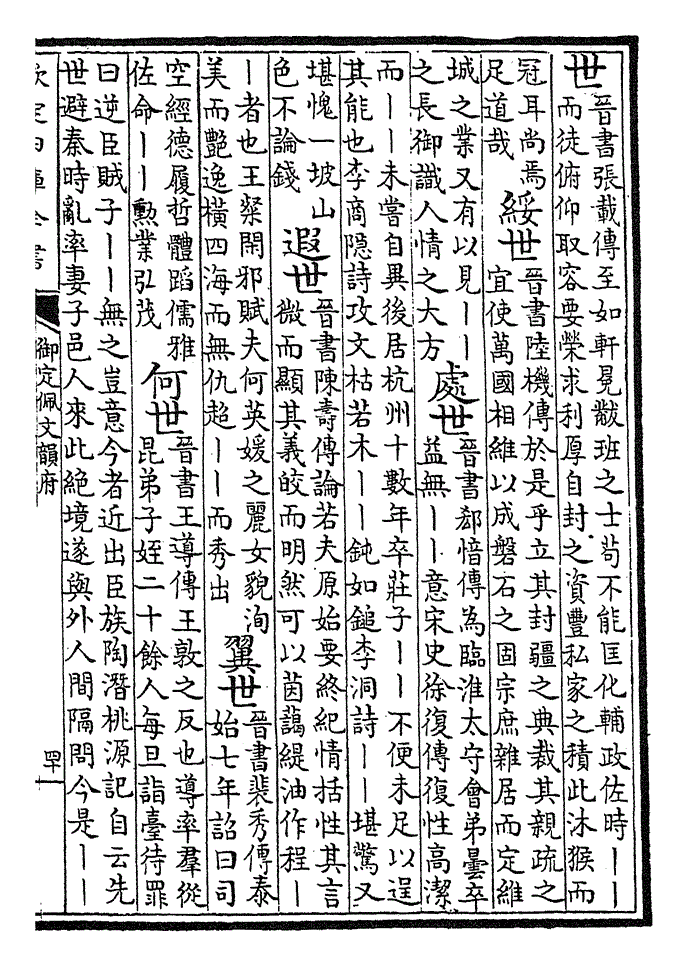 世晉書張載傳至如軒冕黻班之士苟不能匡化輔政佐時丨丨
而徒俯仰取容要榮求利厚自封之資豐私家之積此沐猴而
冠耳尚焉
足道哉
綏世晉書陸機傳於是乎立其封疆之典裁其親疏之
宜使萬國相維以成磐石之固宗庶雜居而定維
城之業又有以見丨丨
之長御識人情之大方
處世晉書郄愔傳為臨淮太守會弟曇卒
益無丨丨意宋史徐復傳復性高潔
而丨丨未嘗自異後居杭州十數年卒莊子丨丨不便未足以逞
其能也李商隱詩攻文枯若木丨丨鈍如鎚李洞詩丨丨堪驚又
堪愧一坡山
色不論錢
遐世晉書陳壽傳論若夫原始要終紀情括性其言
微而顯其義皎而明然可以茵藹緹油作程丨
丨者也王粲閑邪賦夫何英媛之麗女貌洵
美而艷逸橫四海而無仇超丨丨而秀出
翼世晉書裴秀傳泰
始七年詔曰司
空經德履哲體蹈儒雅
佐命丨丨勲業弘茂
何世晉書王導傳王敦之反也導率羣從
昆弟子姪二十餘人每旦詣臺待罪
曰逆臣賊子丨丨無之豈意今者近出臣族陶潛桃源記自云先
世避秦時亂率妻子邑人來此絕境遂與外人間隔問今是丨丨
欽定四庫全書
御定佩文韻府